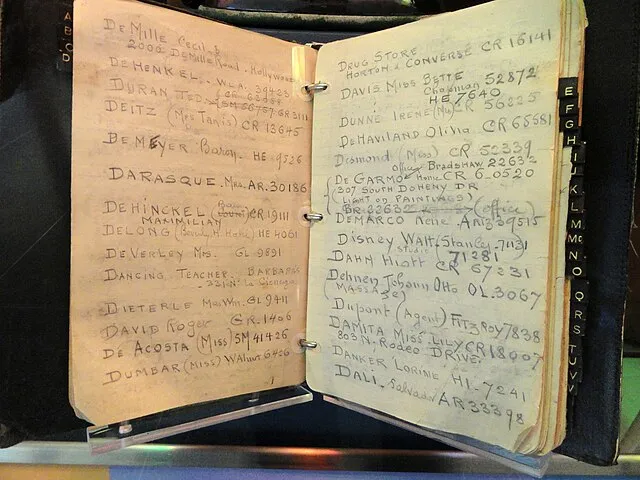 A
B
C
D
DeMille Cecil B
2000 DeMille Road. Hollywood
DeHenkel. W.L.A. 39423
Duran Ted.
SM 56757 GR 3111
Deitz (Mrs Tanis) CR 13645
DeMeyer, Baron. HE 9526
Darasque. Mrs. AR. 30186
DeHinckel (Baron CR 19111
Maximilian
DeLong HE 4061
DeVerley Mrs. GL 9891
Dancing Teacher. Barbara
321 N. La Cienega
Dieterle Mrs Wm. GL 9411
David Roger GR. 1406
De Acosta (Miss) SM 41426
Dumbar (Miss) Walnut 6426
Drug Store
Horton & Converse CR 16141
Davis Miss Bette 52872
Chapman
HE 7640
Dunne Irene CR 56225
DeHaviland Olivia CR 65581
Desmond (Miss) CR 52339
Office Bradshaw 22632
De Garmo Home CR 6.0520
(307 South Doheny Dr
(Light on Paintings)
BR 22632 (office)
DeMarco Rene AR 39515
Disney Walt, Stanley. 71131
Studio
Dahm Hiott 71281
CR 67231
Dehnen Johann Otto OL.3067
(Massage)
Dupont (Agent) Fitzroy 7838
Damita Miss Lily CR 18007
803 N. Rodeo Drive.
Danker Lorine HI. 7241
Dali, Salvador AR 33398
E
F
G
H
I
K
L
M
Mc
N
O
Q
R
S
T
U
V